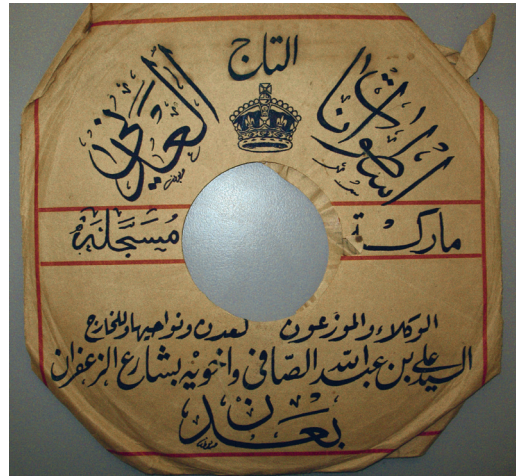 اسطوانات التاج العدني
ماركة مسجلة
الوكلاء والموزعون لعدن ونواحيها وللخارج
السيد علي بن عبد الله الصافي واخويه بشارع الزعفران
بعدن